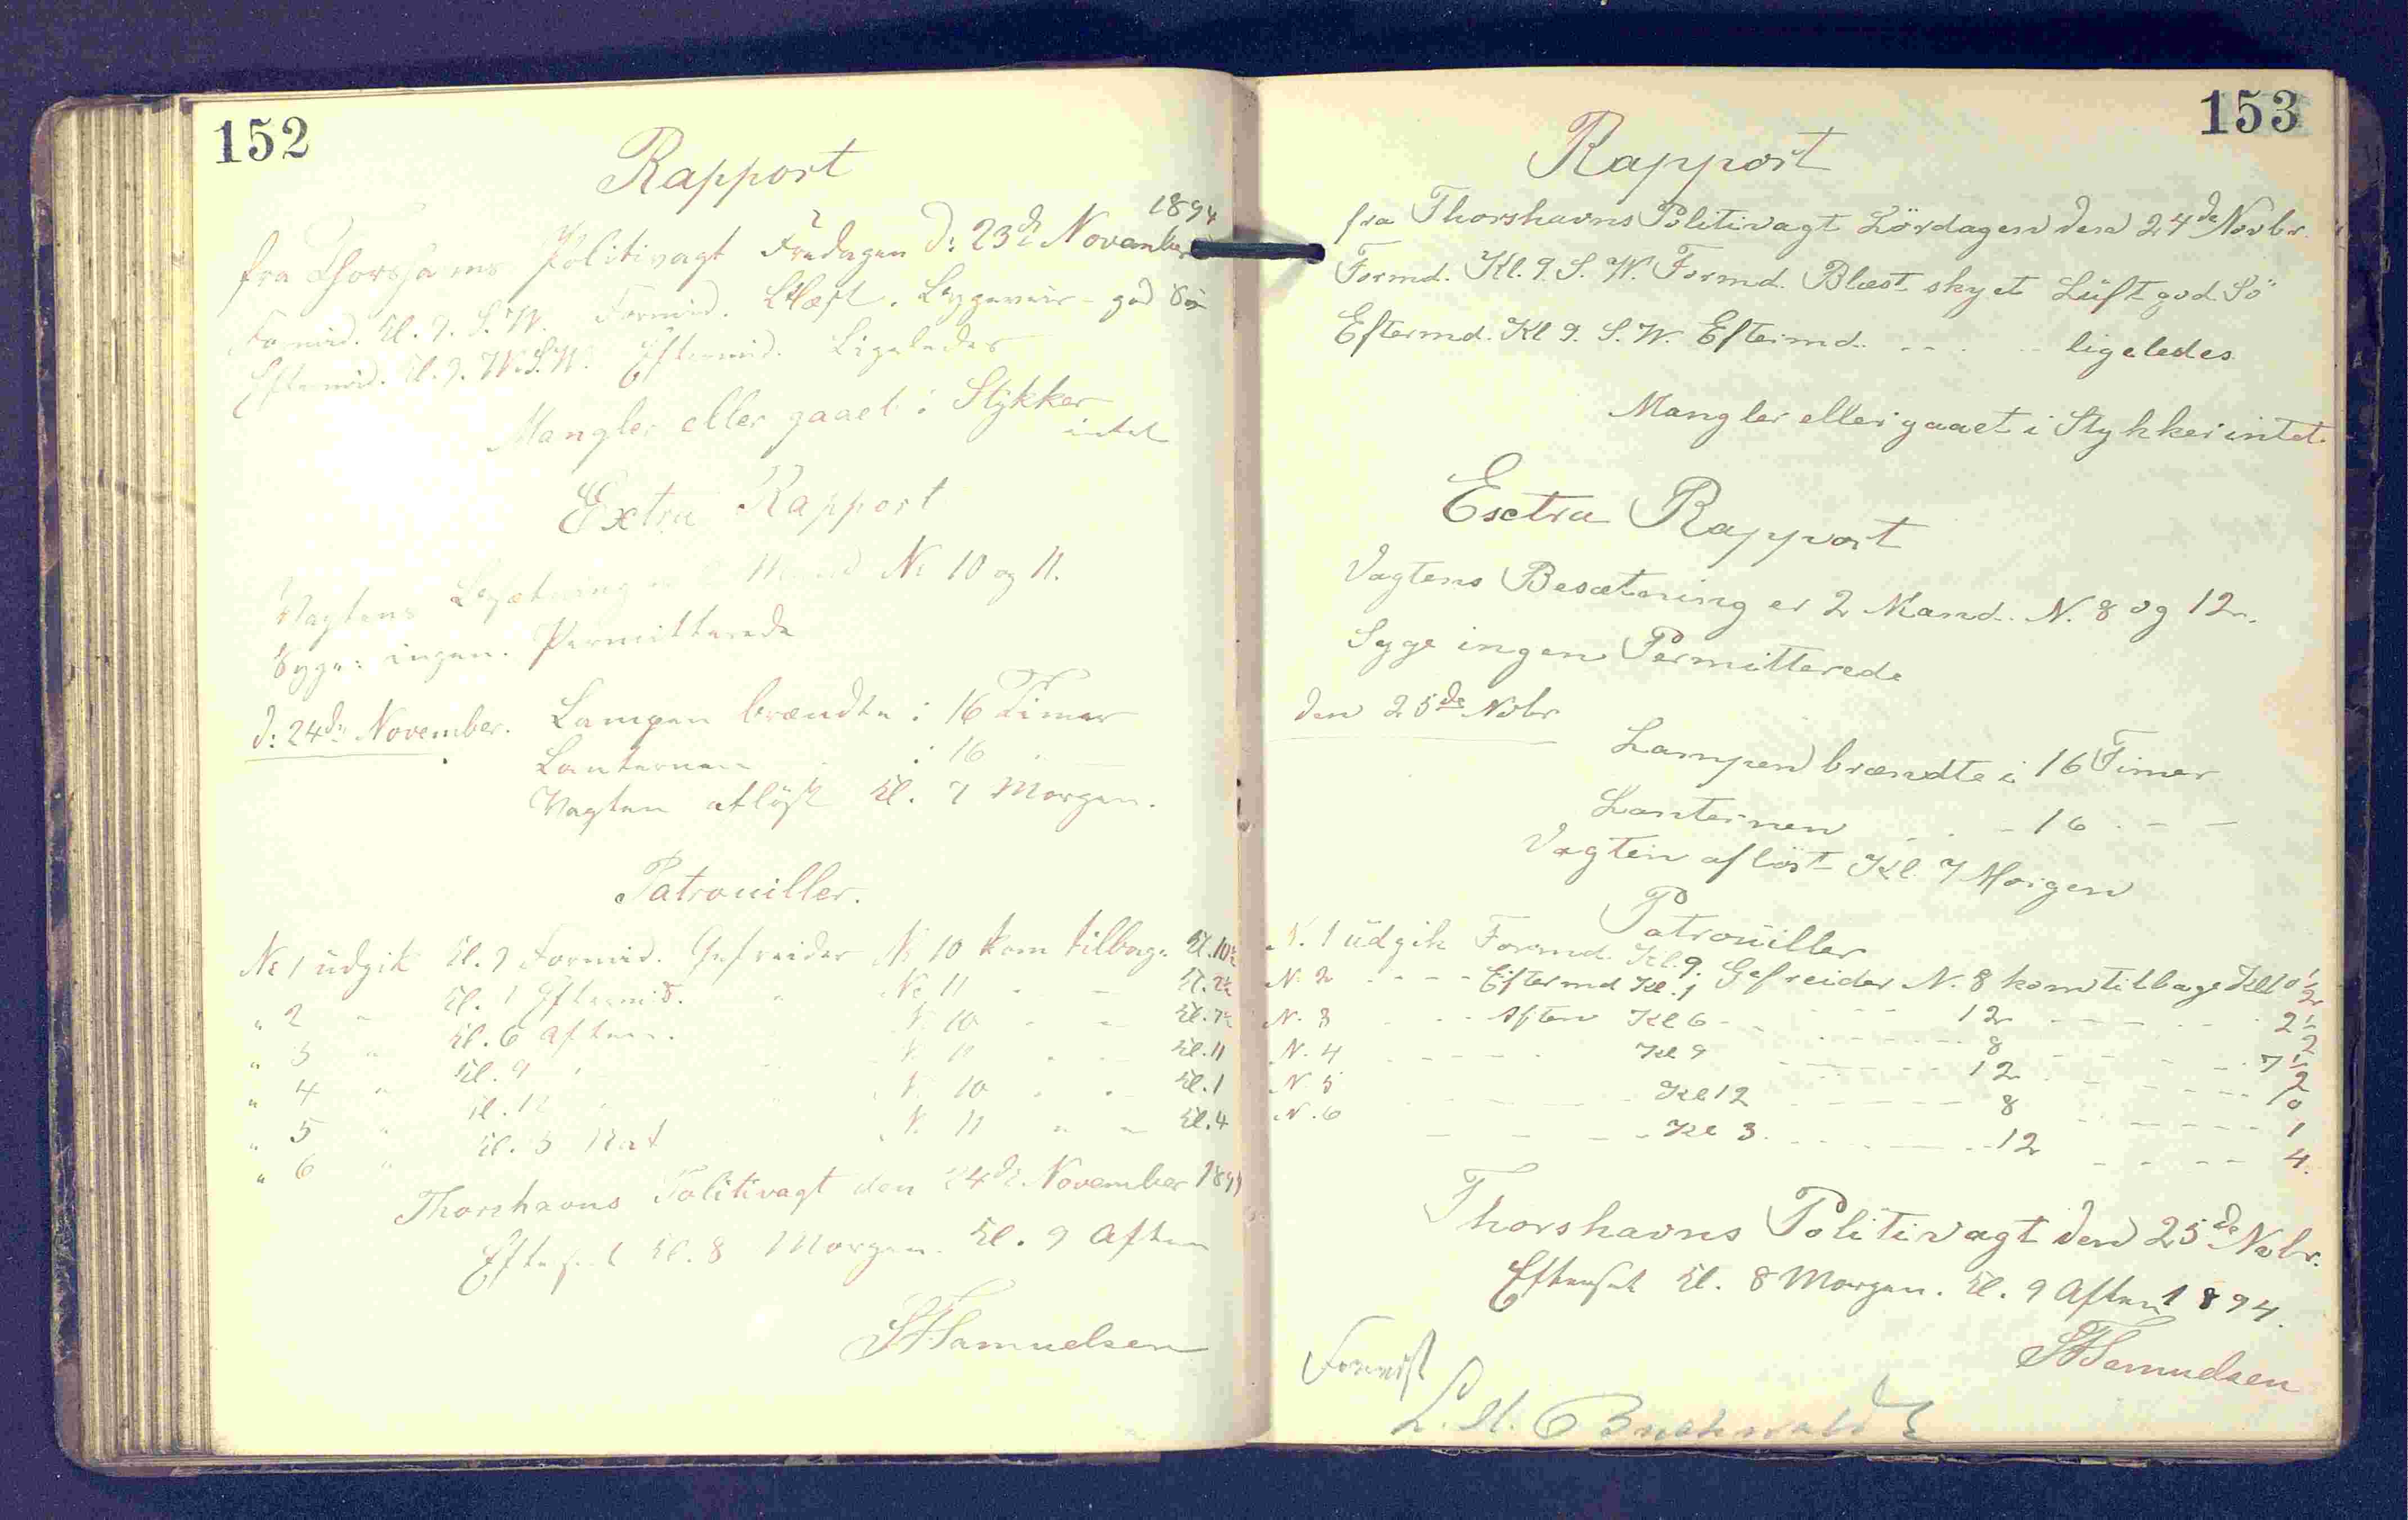 152
Rapport
1894
fra Thorshavns Politivagt Fredagen d: 23de November
Formid. Kl. 9. S.W. Formid. Blæst. Byggeveir - god Sö
Eftermid. Kl. 9. W.S.W. Eftermid. Ligeledes
Mangler eller gaaet i Stykker
intet
Extra Rapport
Vagtens Besætning er 2 Mand No 10 og 11.
Syge: ingen. Permitterede
d: 24de November. Lampen brændte i 16 Timer
Lanternen - i 16 -
Vagten aflöst Kl. 7 Morgen.
Patrouiller.
No 1 üdgik Kl. 9 Formid. Gefreider No 10 kom tilbage Kl. 10½
" 2 " Kl. 1 Eftermid. " No 11 " - Kl. 2½
" 3 " Kl. 6 Aften. N. 10 " - Kl. 7½
" 4 " Kl. 9 " N. 11 " - Kl. 11
" 5 " Kl. 12 " N. 10 " - Kl. 1
" 6 " Kl. 3 Nat N. 11 " - Kl. 4
Thorshavns Politivagt den 24de November 1894
Efterset Kl. 8 Morgen. Kl. 9 Aften
Samuelsen
153
Rapport
fra Thorshavns Politivagt Lördagen den 24de Novbr.
Formd. Kl. 9. S. W. Formd. Blæst skyet Lüft god Sö
Eftermd. Kl 9. S. W. Eftermd. - - - - ligeledes
Mangler eller gaaet i Stykker intet.
Esctra Rapport
Vagtens Besætning er 2 Mand. N. 8 og 12.
Syge ingen Permitterede
den 25de Nobr
Lampen brændte i 16 Timer
Lanternen - - - 16 - - -
Vagten aflöst Kl. 7 Morgen
Patroüiller
N. 1 üdgik Formd. Kl. 9. Gefreider N. 8 kom tilbage Kl 10½
N. 2 - - - - Eftermd Kl. 1 - - - - 12 - - - - 2½
N. 3 - - - Aften Kl 6 - - - - 8 - - - - 7½
N. 4 - - - - Kl 9 - - - - 12 - - - - 10
N. 5 - - - - Kl 12 - - - - 8 - - - - 1
N. 6 - - - - Kl 3. - - - - 12 - - - - 4.
Thorshavns Politivagt den 25de Nobr.
Efterset Kl. 8 Morgen. Kl. 9 Aften 1894.
Samuelsen
Forevist
Buchwaldt